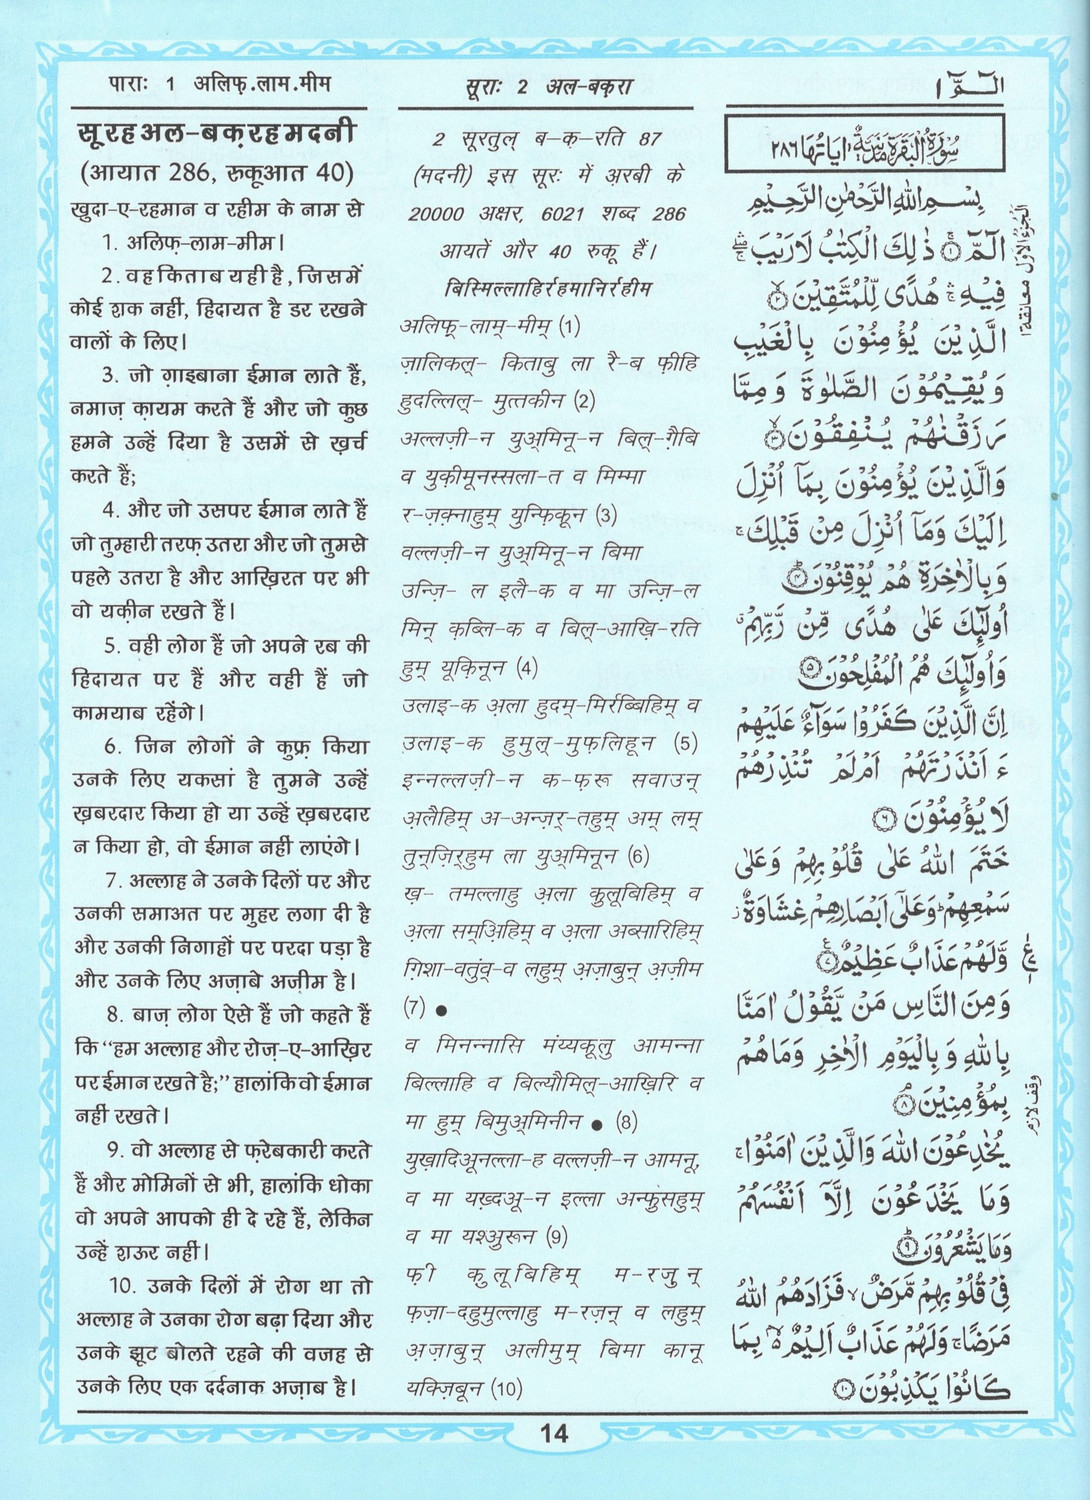 पाराः 1 अलिफ़.लाम.मीम
सूरहअल-बक़रहमदनी
(आयात 286, रुकूआत 40)
खुदा-ए-रहमान व रहीम के नाम से
1. अलिफ़-लाम-मीम।
2. वह किताब यही है, जिसमें
कोई शक नहीं, हिदायत है डर रखने
वालों के लिए।
3. जो ग़ाइबाना ईमान लाते हैं,
नमाज़ क़ायम करते हैं और जो कुछ
हमने उन्हें दिया है उसमें से ख़र्च
करते हैं;
4. और जो उसपर ईमान लाते हैं
जो तुम्हारी तरफ़ उतरा और जो तुमसे
पहले उतरा है और आख़िरत पर भी
वो यक़ीन रखते हैं।
5. वही लोग हैं जो अपने रब की
हिदायत पर हैं और वही हैं जो
कामयाब रहेंगे।
6. जिन लोगों ने कुफ़्र किया
उनके लिए यकसां है तुमने उन्हें
ख़बरदार किया हो या उन्हें ख़बरदार
न किया हो, वो ईमान नहीं लाएंगे।
7. अल्लाह ने उनके दिलों पर और
उनकी समाअत पर मुहर लगा दी है
और उनकी निगाहों पर परदा पड़ा है
और उनके लिए अज़ाबे अज़ीम है।
8. बाज़ लोग ऐसे हैं जो कहते हैं
कि “हम अल्लाह और रोज़-ए-आख़िर
पर ईमान रखते है;” हालांकि वो ईमान
नहीं रखते।
9. वो अल्लाह से फ़रेबकारी करते
हैं और मोमिनों से भी, हालांकि धोका
वो अपने आपको ही दे रहे हैं, लेकिन
उन्हें शऊर नहीं।
10. उनके दिलों में रोग था तो
अल्लाह ने उनका रोग बढ़ा दिया और
उनके झूट बोलते रहने की वजह से
उनके लिए एक दर्दनाक अज़ाब है।
सूराः 2 अल-बक़रा
2 सूरतुल् ब-क़-रति 87
(मदनी) इस सूरः में अ़रबी के
20000 अक्षर, 6021 शब्द 286
आयतें और 40 रुकू हैं।
बिस्मिल्लाहिर्रहमानिर्रहीम
अलिफ़्-लाम्-मीम् (1)
ज़ालिकल्- किताबु ला रै-ब फ़ीहि
हुदल्लिल्- मुत्तक़ीन (2)
अल्लज़ी-न युअ्मिनू-न बिल्-ग़ैबि
व युक़ीमूनस्सला-त व मिम्मा
र-ज़क़्नाहुम् युन्फ़िक़ून (3)
वल्लज़ी-न युअ्मिनू-न बिमा
उन्ज़ि- ल इलै-क व मा उन्ज़ि-ल
मिन् क़ब्लि-क व बिल्-आख़ि-रति
हुम् यूक़िनून (4)
उलाइ-क अ़ला हुदम्-मिर्रब्बिहिम् व
उलाइ-क हुमुल्-मुफ़लिहून (5)
इन्नल्लज़ी-न क-फ़रू सवाउन्
अ़लैहिम् अ-अन्ज़र्-तहुम् अम् लम्
तुन्ज़िर्हुम ला युअ्मिनून (6)
ख़- तमल्लाहु अ़ला क़ुलूबिहिम् व
अ़ला सम्अ़िहिम् व अ़ला अब्सारिहिम्
ग़िशा-वतुंव्-व लहुम् अ़ज़ाबुन् अ़ज़ीम
(7) ●
व मिनन्नासि मंय्यक़ूलु आमन्ना
बिल्लाहि व बिल्यौमिल्-आख़िरि व
मा हुम् बिमुअ्मिनीन ● (8)
युख़ादिअूनल्ला-ह वल्लज़ी-न आमनू,
व मा यख़्दअू-न इल्ला अन्फ़ुसहुम्
व मा यश्अुरून (9)
फ़ी क़ुलूबिहिम् म-रजुन्
फ़ज़ा-दहुमुल्लाहु म-रज़न् व लहुम्
अ़ज़ाबुन् अलीमुम् बिमा कानू
यक्ज़िबून (10)
الٓـمّٓ ١
سُوْرَةُ الْبَقَرَةِ مَدَنِيَّةٌ اٰيَاتُهَا ٢٨٦
بِسْمِ اللّٰهِ الرَّحْمٰنِ الرَّحِيْمِ
الٓـمّٓ ۚ﴿١﴾ ذٰلِكَ الْكِتٰبُ لَا رَيْبَ ۛ
فِيْهِ ۛ هُدًى لِّلْمُتَّقِيْنَ ﴿٢﴾
الَّذِيْنَ يُؤْمِنُوْنَ بِالْغَيْبِ
وَيُقِيْمُوْنَ الصَّلٰوةَ وَمِمَّا
رَزَقْنٰهُمْ يُنْفِقُوْنَ ﴿٣﴾
وَالَّذِيْنَ يُؤْمِنُوْنَ بِمَآ اُنْزِلَ
اِلَيْكَ وَمَآ اُنْزِلَ مِنْ قَبْلِكَ ۚ
وَبِالْاٰخِرَةِ هُمْ يُوْقِنُوْنَ ﴿٤﴾
اُولٰٓئِكَ عَلٰى هُدًى مِّنْ رَّبِّهِمْ ۗ
وَاُولٰٓئِكَ هُمُ الْمُفْلِحُوْنَ ﴿٥﴾
اِنَّ الَّذِيْنَ كَفَرُوْا سَوَآءٌ عَلَيْهِمْ
ءَ اَنْذَرْتَهُمْ اَمْ لَمْ تُنْذِرْهُمْ
لَا يُؤْمِنُوْنَ ﴿٦﴾
خَتَمَ اللّٰهُ عَلٰى قُلُوْبِهِمْ وَعَلٰى
سَمْعِهِمْ ؕ وَعَلٰٓى اَبْصَارِهِمْ غِشَاوَةٌ ز
وَّلَهُمْ عَذَابٌ عَظِيْمٌ ﴿٧﴾
وَمِنَ النَّاسِ مَنْ يَّقُوْلُ اٰمَنَّا
بِاللّٰهِ وَبِالْيَوْمِ الْاٰخِرِ وَمَا هُمْ
بِمُؤْمِنِيْنَ ﴿٨﴾
يُخٰدِعُوْنَ اللّٰهَ وَالَّذِيْنَ اٰمَنُوْا ۚ
وَمَا يَخْدَعُوْنَ اِلَّآ اَنْفُسَهُمْ
وَمَا يَشْعُرُوْنَ ﴿٩﴾
فِيْ قُلُوْبِهِمْ مَّرَضٌ ۙ فَزَادَهُمُ اللّٰهُ
مَرَضًا ۚ وَلَهُمْ عَذَابٌ اَلِيْمٌ ۙ بِمَا
كَانُوْا يَكْذِبُوْنَ ﴿١٠﴾
الجزء الاول معانقة ١
ع
وقف لازم
14